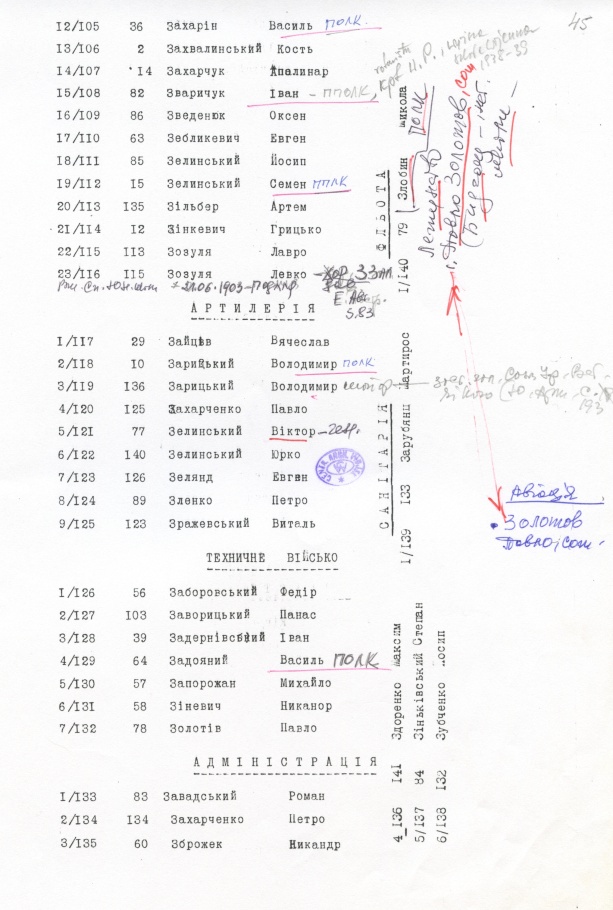 45
I2/I05 36 Захарін Василь полк.
I3/I06 2 Захвалинський Кость
I4/I07 I4 Захарчук Аполинар
I5/I08 82 Зваричук Іван – пполк,
I6/I09 86 Зведенюк Оксен
I7/II0 63 Зебликевич Евген
I8/III 85 Зелинський Йосип
I9/II2 I5 Зелинський Семен пплк
20/II3 I35 Зільбер Артем
2I/II4 I2 Зінкевич Грицько
22/II5 II3 Зозуля Лавро
23/II6 II5 Зозуля Левко
АРТИЛЕРІЯ
I/II7 29 Зайців Вячеслав
2/II8 I0 Зарицький Володимир полк
3/II9 I36 Зарицький Володимир
4/I20 I25 Захарченко Павло
5/I2I 77 Зелинський Віктор – ген.
6/I22 I40 Зелинський Юрко
7/I23 I26 Зелянд Евген
8/I24 89 Зленко Петро
9/I25 I23 Зражевський Виталь
ТЕХНИЧНЕ ВІЙСЬКО
I/I26 56 Заборовський Федір
2/I27 I03 Заворицький Панас
3/I28 39 Задернівський Іван
4/I29 64 Задояний Василь ПОЛК
5/I30 57 Запорожан Михайло
6/I3I 58 Зіневич Никанор
7/I32 78 Золотів Павло
АДМІНІСТРАЦІЯ
I/I33 83 Завадський Роман
2/I34 I34 Захарченко Петро
3/I35 60 Зброжек Никандр
4_I36 I4I Здоренко Максим
5/I37 84 Зіньківський Степан
6/I38 I32 Зубченко Йосип
САНІТАРІЯ
I/I39 I33 Зарубянц Мартирос
ФЛЬОТА
I/I40 79 Злобин Микола полк
Летунство
Павло Золотов, сот
Авіація
Золотов
Павло, сот.